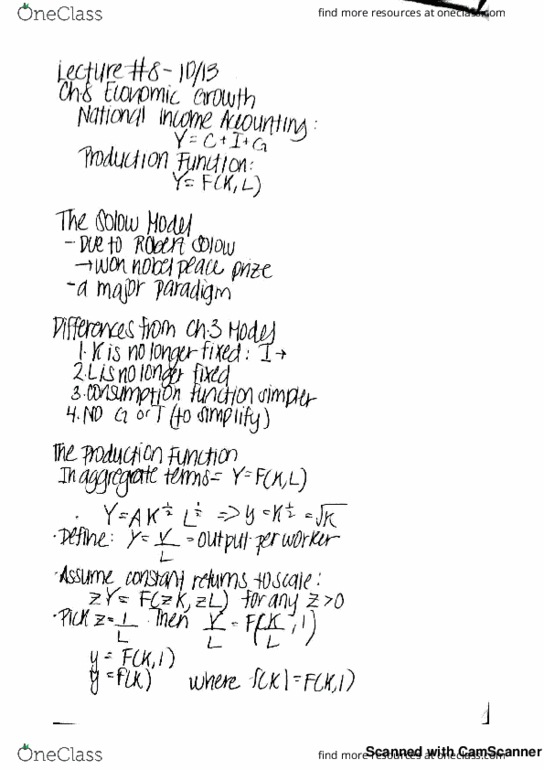 OneClass
find more resources at oneclass.com
Lecture #8 - 10/13
Ch.8 Economic Growth
National Income Accounting:
Y = C + I + G
Production Function:
Y = F(K, L)
The Solow Model
- Due to Robert Solow
→ won nobel peace prize
- a major paradigm
Differences from Ch.3 Model
1. K is no longer fixed: I →
2. L is no longer fixed
3. consumption function simpler
4. NO G or T (to simplify)
The Production Function
In aggregate terms = Y = F(K, L)
· Y = A K^½ L^½ => y = K^½ = √K
· Define: Y = Y/L = output per worker
· Assume constant returns to scale:
zY = F(zK, zL) for any z > 0
· Pick z = 1/L. Then Y/L = F(K/L, 1)
y = F(K, 1)
y = f(K) where f(K) = F(K, 1)
1
OneClass
find more resources at oneclass.com
Scanned with CamScanner